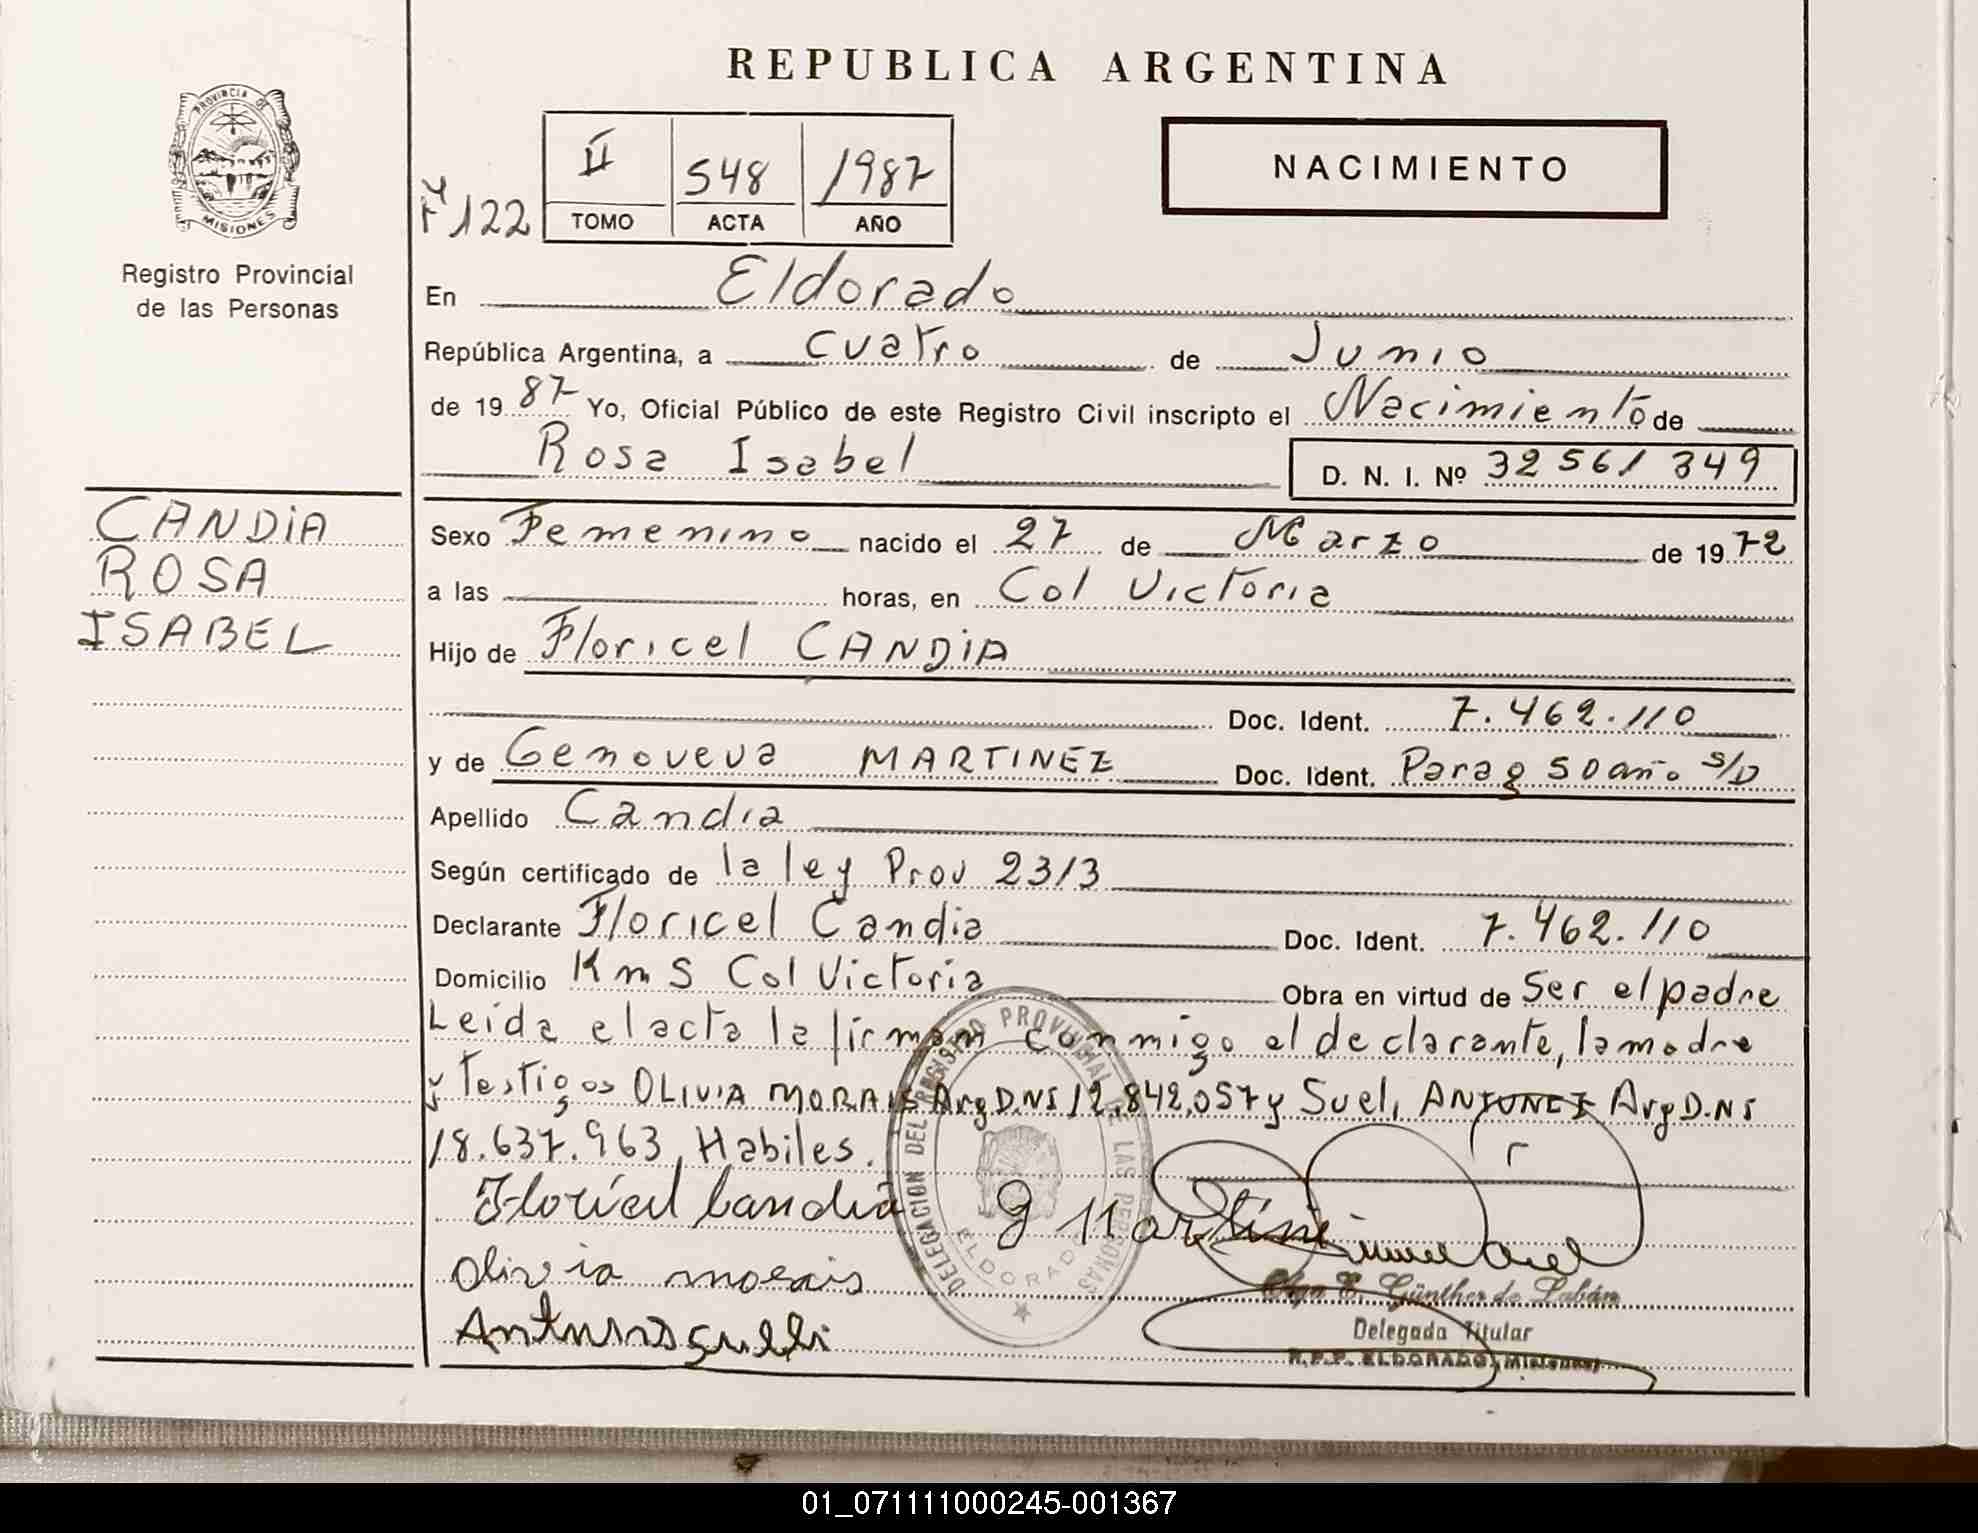 REPUBLICA ARGENTINA
PROVINCIA DE
MISIONES
Registro Provincial
de las Personas
NACIMIENTO
II 548 1987
TOMO ACTA AÑO
122
En Eldorado
República Argentina, a cuatro de Junio
de 1987 Yo, Oficial Público de este Registro Civil inscripto el Nacimiento de
Rosa Isabel D. N. I. Nº 32561349
CANDIA
ROSA
ISABEL
Sexo Femenino nacido el 27 de Marzo de 1972
a las horas, en Col Victoria
Hijo de Floricel CANDIA
Doc. Ident. 7.462.110
y de Genoveva MARTINEZ Doc. Ident. Parag 50 año s/D
Apellido Candia
Según certificado de la ley Prov 2313
Declarante Floricel Candia Doc. Ident. 7.462.110
Domicilio Km 5 Col Victoria Obra en virtud de Ser el padre
Leida el acta la firman conmigo el declarante, la madre
y Testigos OLIVIA MORAIS Arg D.NI 12.842,057 y Sueli ANTUNEZ Arg D.NI
18.637.963, Habiles.
Floricel Candia g Martine
olivia morais
DELEGACION DEL REGISTRO PROVINCIAL DE LAS PERSONAS
ELDORADO
Olga E. Günther de Labán
Delegada Titular
R.P.P. ELDORADO (Misiones)
01_071111000245-001367